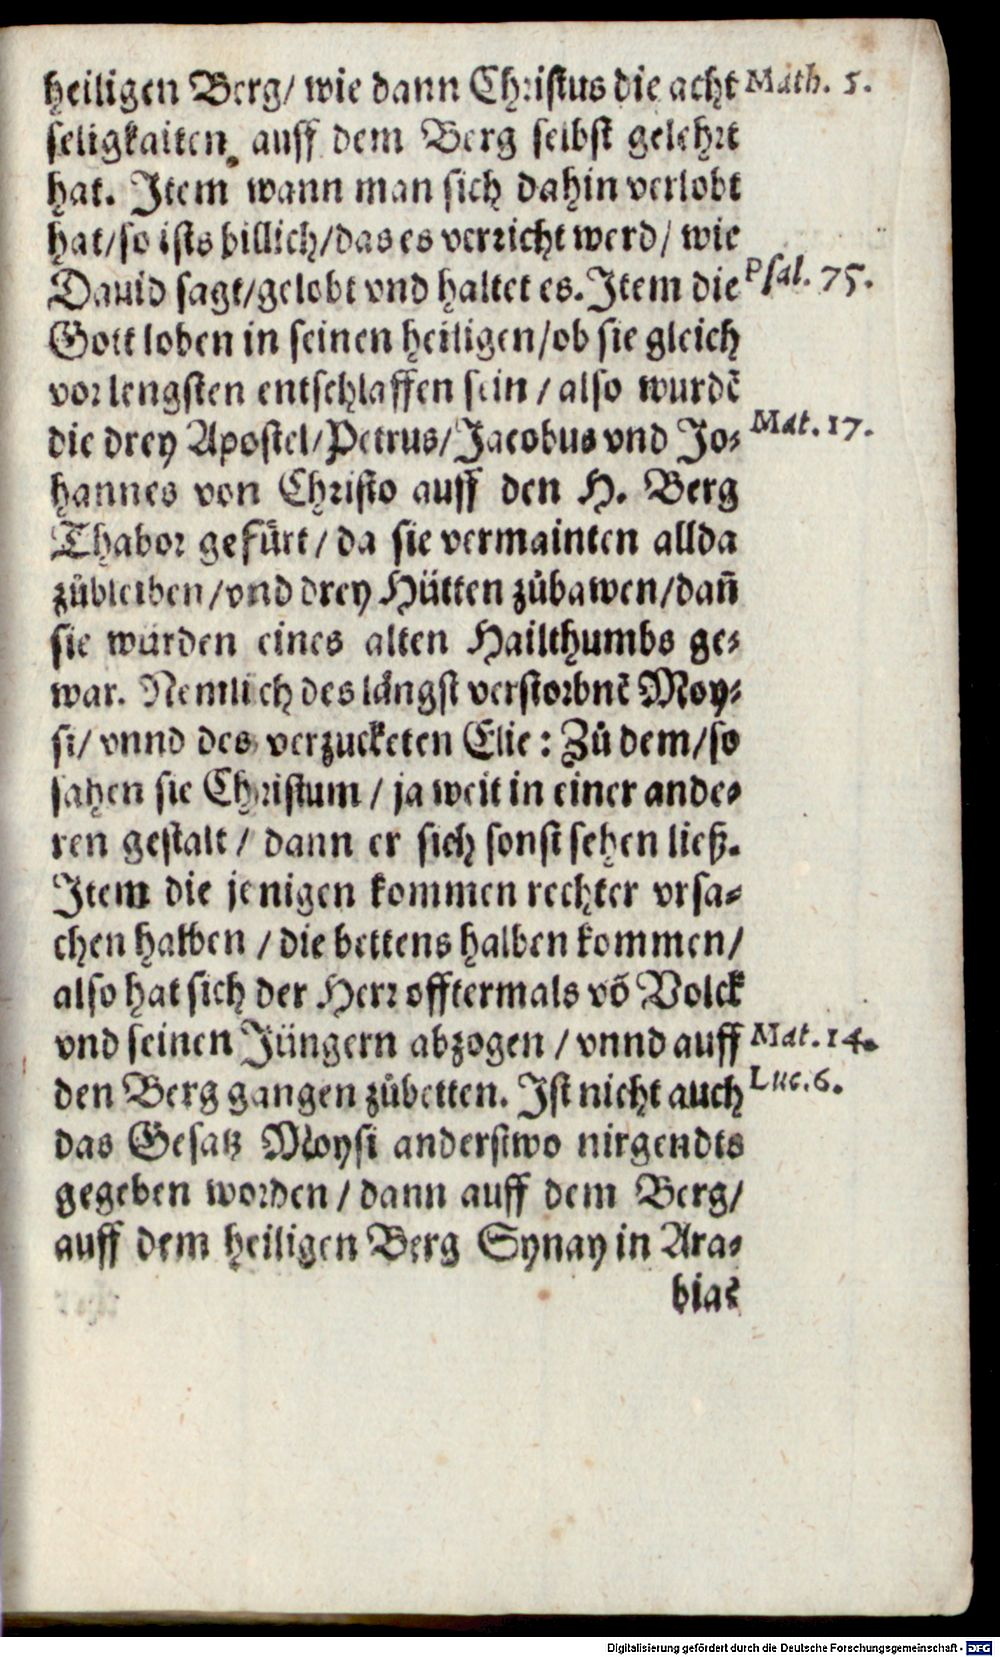 heiligen Berg/ wie dann Christus die acht Math. 5.
seligkaiten auff dem Berg selbst gelehrt
hat. Item wann man sich dahin verlobt
hat/so ists billich/das es verricht werd/ wie
Dauid sagt/gelobt vnd haltet es. Item die Psal. 75.
Gott loben in seinen heiligen/ob sie gleich
vor lengsten entschlaffen sein / also wurdẽ
die drey Apostel/Petrus/Jacobus vnd Jo- Mat. 17.
hannes von Christo auff den H. Berg
Thabor gefürt/ da sie vermainten allda
zůbleiben/vnd drey Hütten zůbawen/dañ
sie wurden eines alten Hailthumbs ge-
war. Nemlich des längst verstorbnẽ Moy-
si/ vnnd des verzucketen Elie: Zů dem/so
sahen sie Christum / ja weit in einer ande-
ren gestalt/ dann er sich sonst sehen ließ.
Item die jenigen kommen rechter vrsa-
chen halben / die bettens halben kommen/
also hat sich der Herr offtermals võ Volck
vnd seinen Jüngern abzogen / vnnd auff Mat. 14.
den Berg gangen zůbetten. Ist nicht auch Luc. 6.
das Gesatz Moysi anderstwo nirgendts
gegeben worden/ dann auff dem Berg/
auff dem heiligen Berg Synay in Ara-
bia?
Digitalisierung gefördert durch die Deutsche Forschungsgemeinschaft - DFG